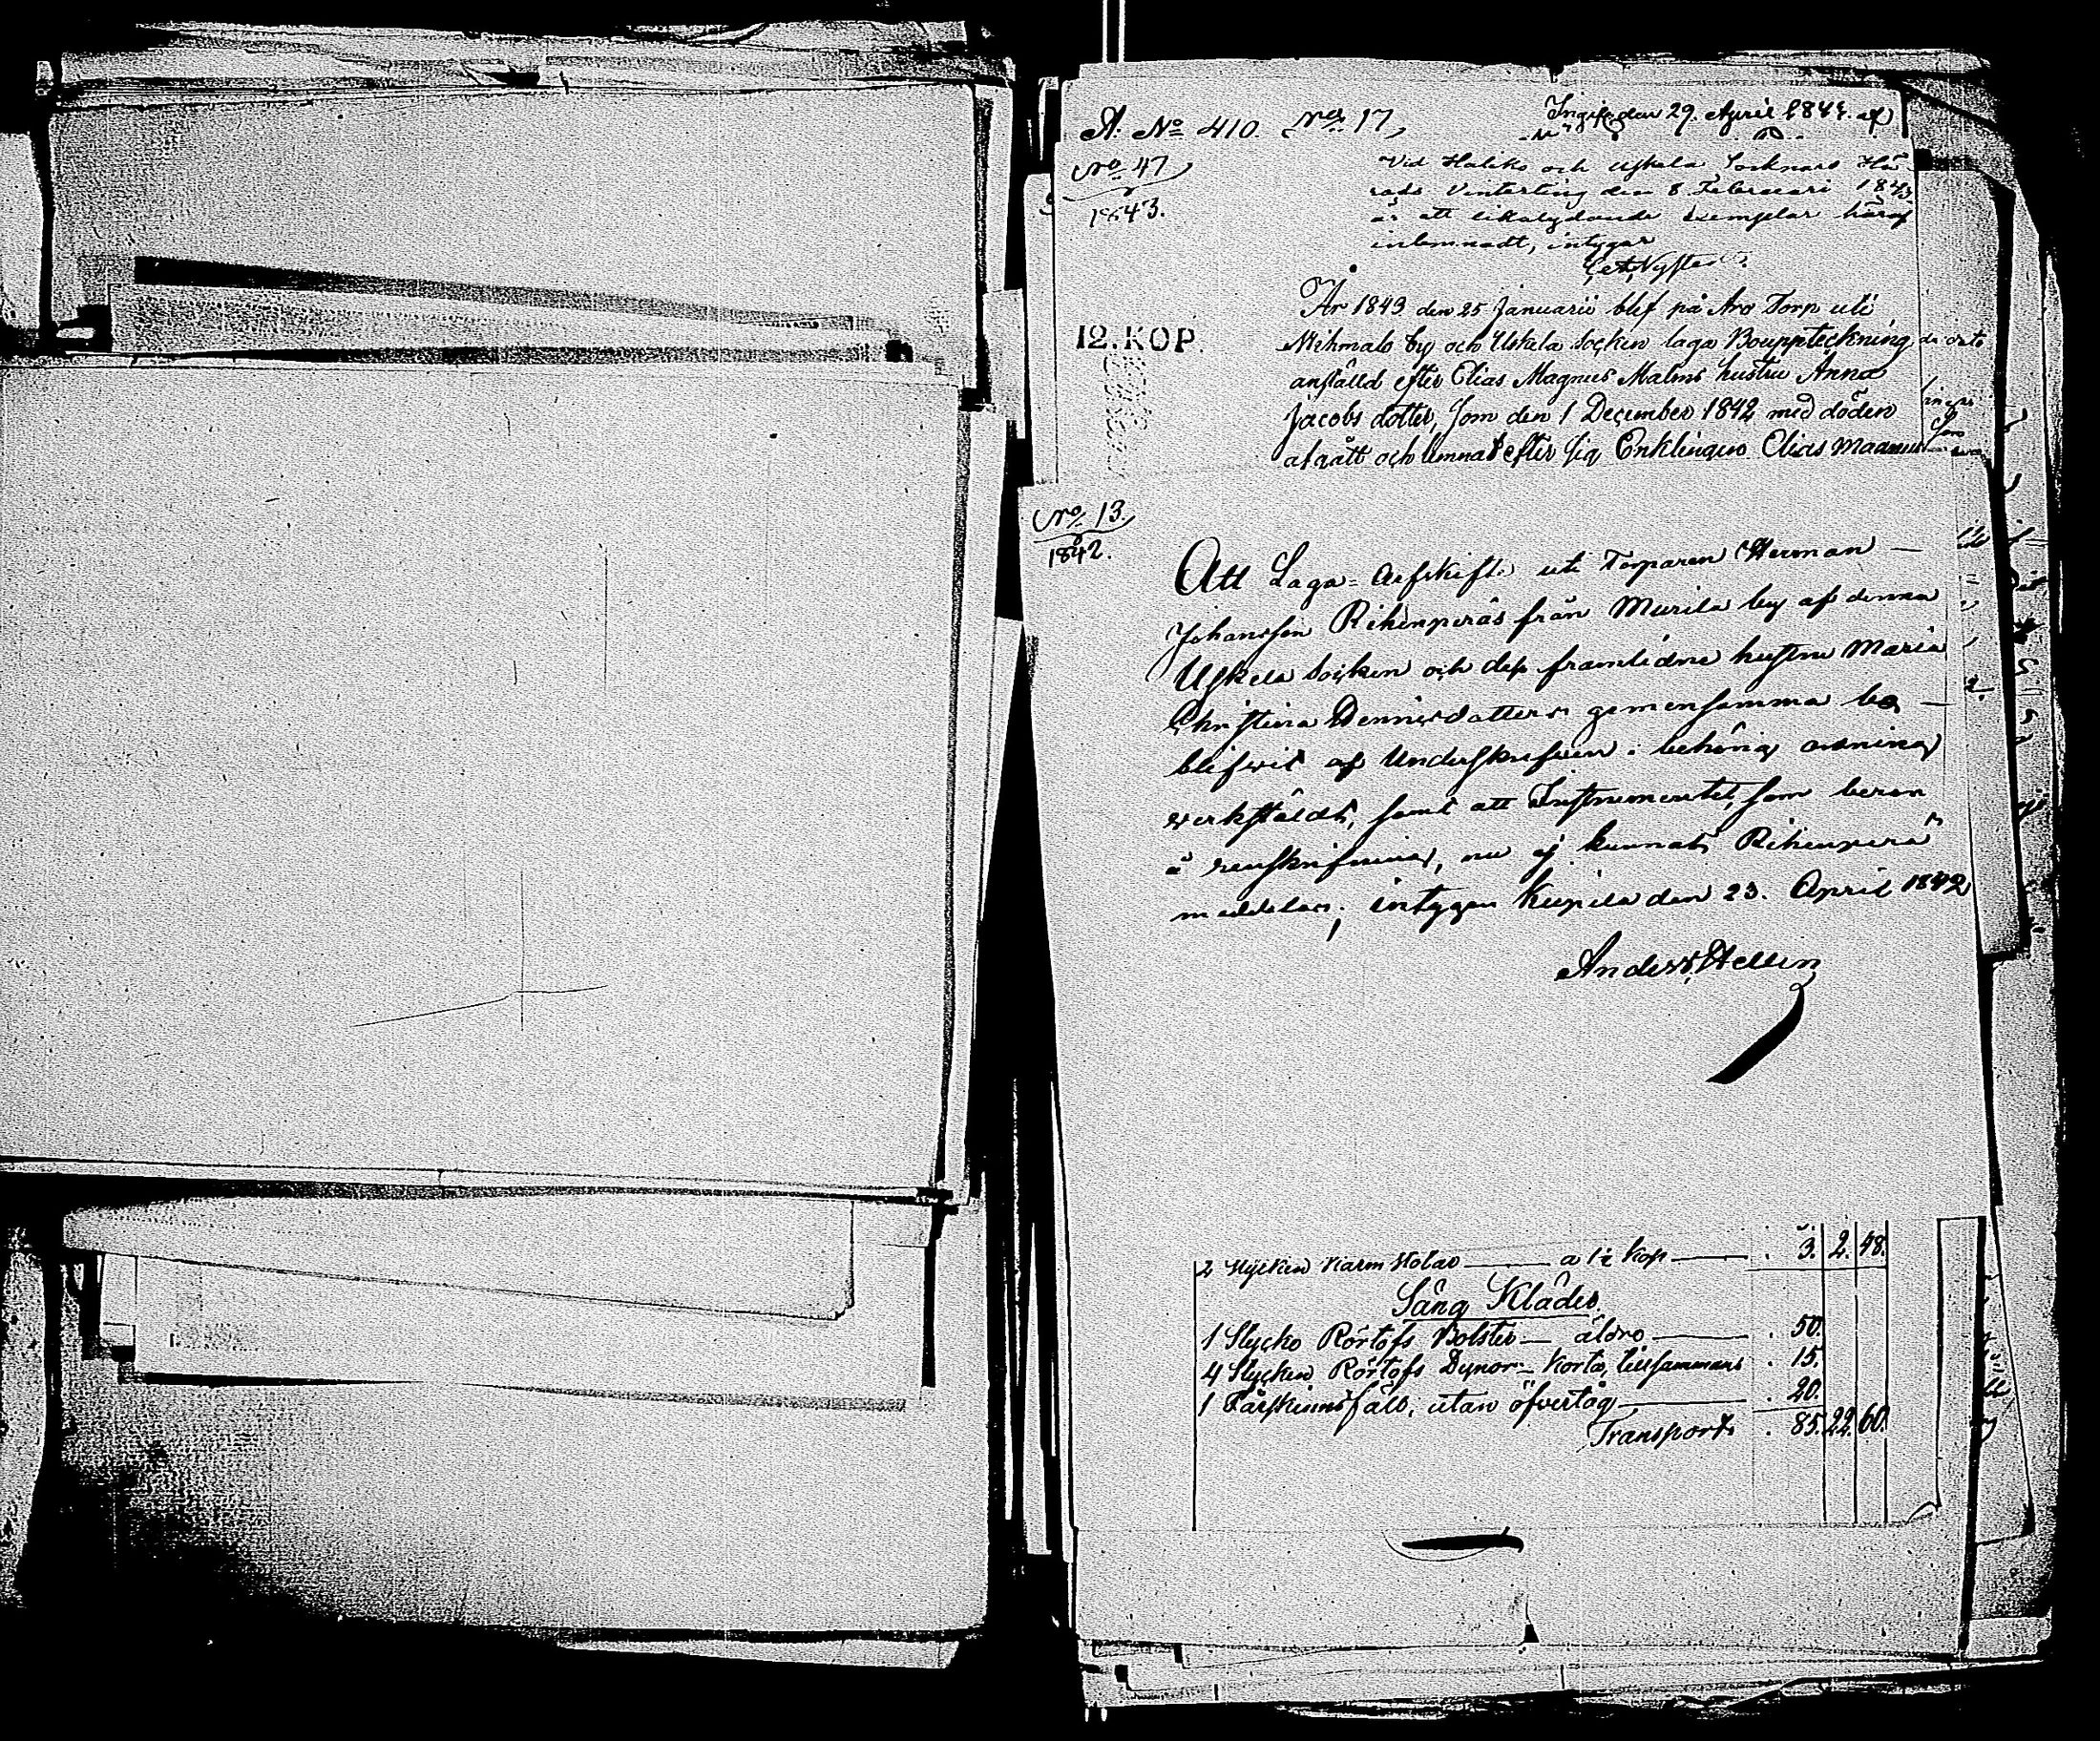 A. No 410. No 17.
Ingif. den 29. April 1844. af
No 47
1843.
Vid Haliko och Uskela Socknars Hä-
rads Vinterting den 8 Februari 1843
är ett likalydande exemplar häraf
inlemnadt, intygar
12. KOP.
År 1843 den 25 Januarii blef på Aro Torp uti
Mihmalo by och Uskela Socken laga Bouppteckning
anstäld efter Elias Magnus Malms hustru Anna
Jacobs dotter, som den 1 December 1842 med döden
afgått och lemnat efter sig Enklingen Elias Magnus
No 13.
1842.
Att Laga Arfskifte uti Torparen Herman
Johansson Rihenperäs från Murila by af denna
Uskela Socken och dess framlidne hustru Maria
Christina Dennisdotters gemensamma bo
blifvit af Underskrefven i behörig ordning
verkstäldt, samt att Instrumentet, som beror
å renskrifning, nu ej kunnat Rihenperä
meddelas; intygar Kupila den 23. April 1842
Anders Hellin
2 Stycken Karm Stolar a 1½ Kop . 3. 2. 48.
Säng Kläder.
1 Stycke Rörtofs Bolster äldre . 50.
4 Stycken Rörtofs Dynor Korta, tillsammans . 15.
1 Fårskinnsfäll, utan öfvertåg . 20.
Transport . 85. 22. 60.